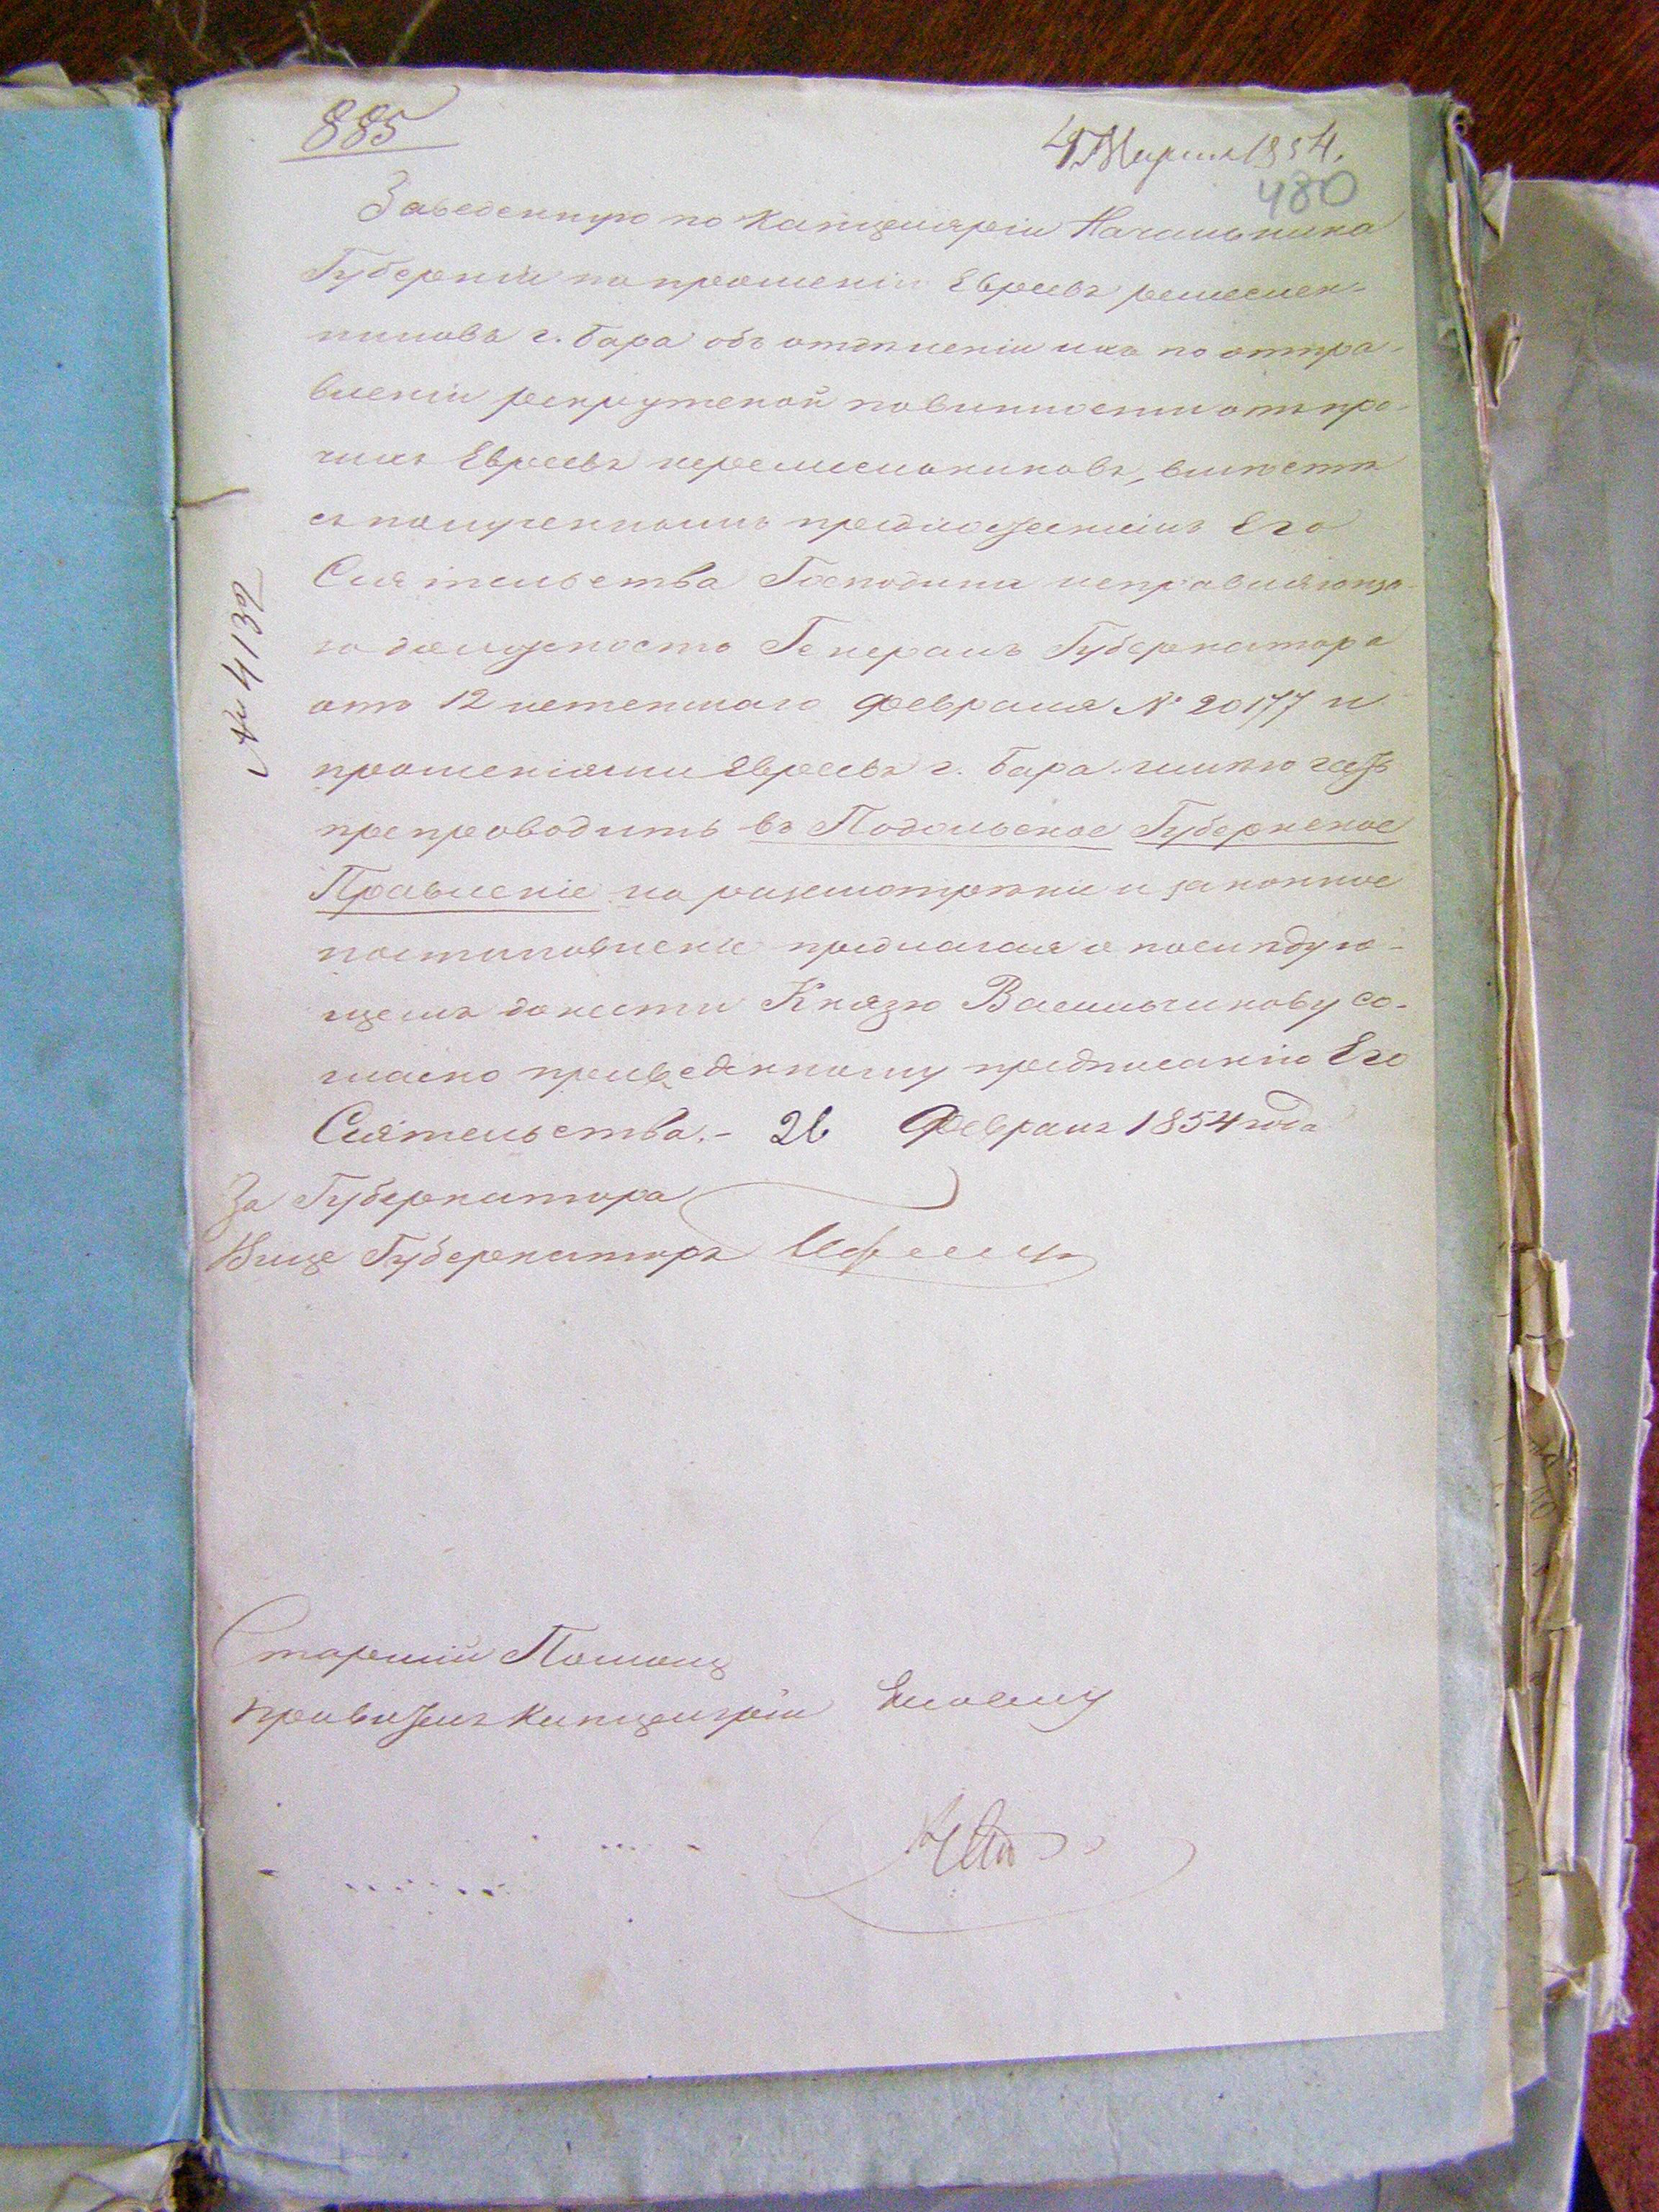 885
4 Марта 1854.
480
Заведенную по Канцеляріи Начальника
Губерніи по прошенію Евреевъ ремеслен-
никовъ г. Бара объ отдѣленіи ихъ по отпра-
вленію рекрутской повинности отъ про-
чихъ Евреевъ неремесленниковъ, вмѣстѣ
съ полученнымъ предложеніемъ Его
Сіятельства Господина исправляюща-
го должность Генералъ Губернатора
отъ 12 истекшаго Февраля № 20177 и
прошеніями Евреевъ г. Бара имѣю честь
препроводить въ Подольское Губернское
Правленіе на разсмотрѣніе и законное
постановленіе предлагая о послѣдую-
щемъ донести Князю Васильчикову со-
гласно приведенному предписанію Его
Сіятельства.- 26 Февраля 1854 года
За Губернатора
Вице Губернаторъ
№ 4132
Старшій Помощ
Правителя Канцеляріи